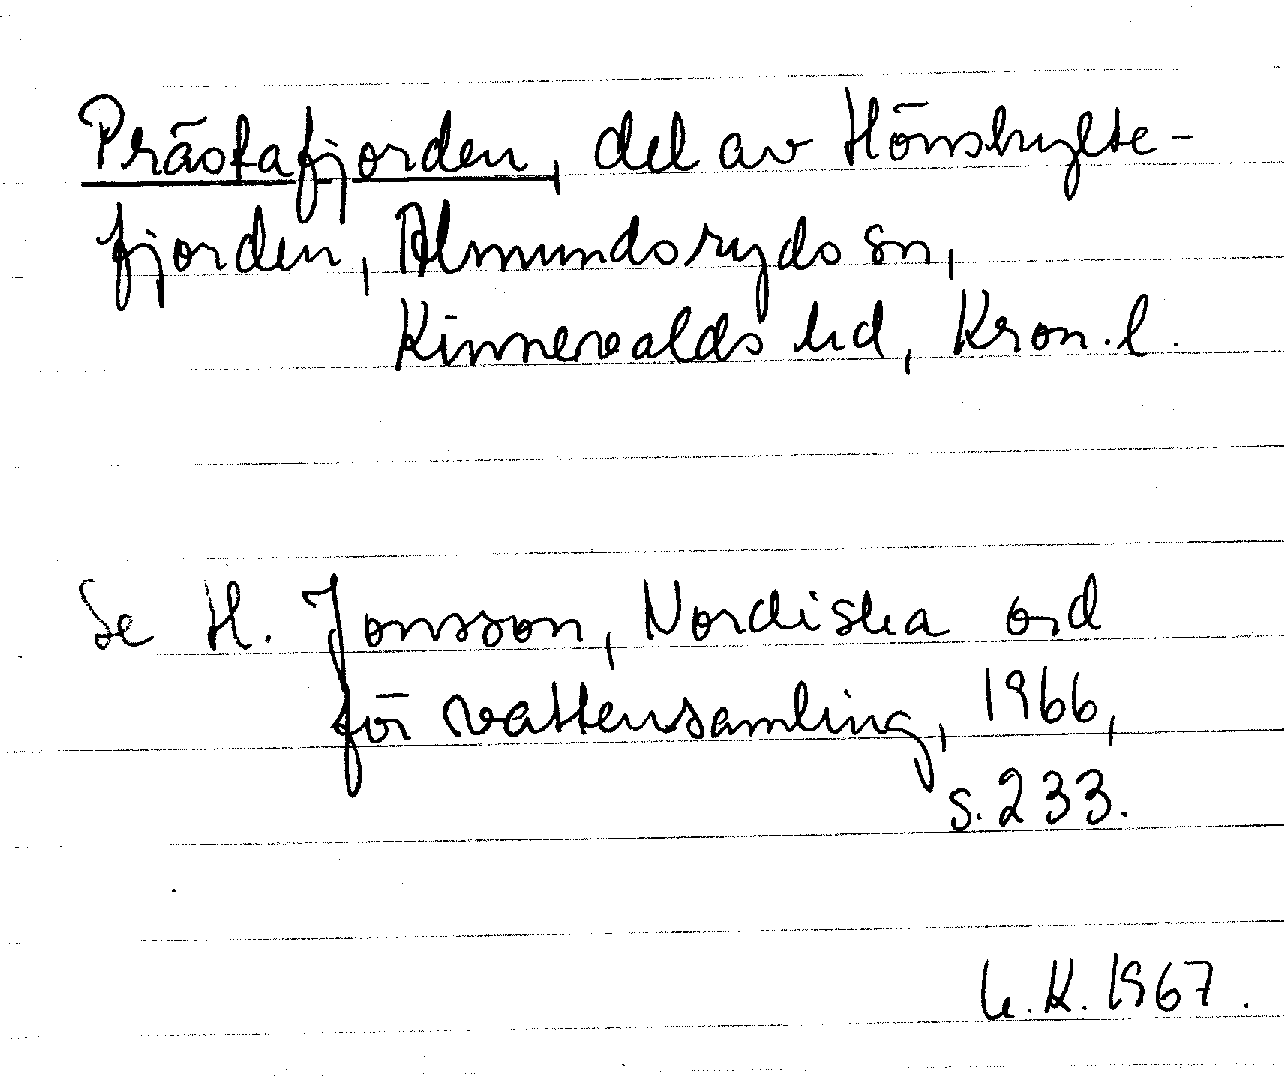 Prästafjorden, del av Hönshylte-
fjorden, Almundsryds sn,
Kinnevalds hd, Kron.l.
Se H. Jonsson, Nordiska ord
för vattensamling, 1966,
s. 233.
K. 1967.